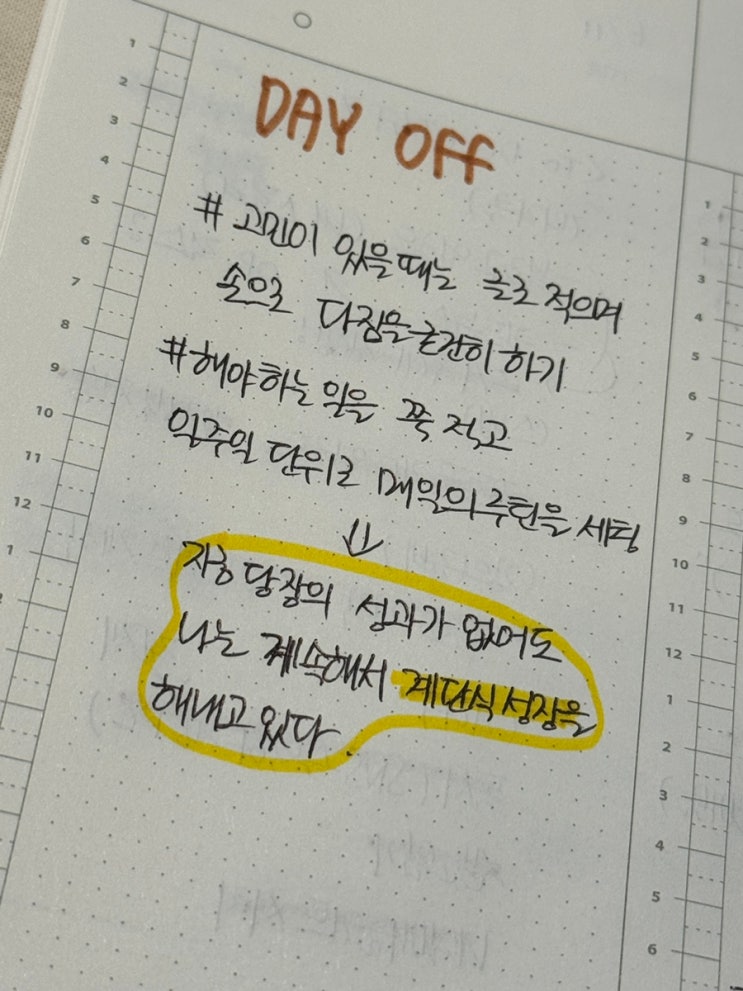 DAY OFF
# 고민이 있을때는 글로 적으며
손으로 다짐을 굳건히 하기
#해야하는 일을 쭉 적고
일주일 단위로 매일의 루틴을 세팅
지금 당장의 성과가 없어도
나는 계속해서 계단식 성장을
해내고 있다.
1
2
3
4
5
6
7
8
9
10
11
12
1
1
2
3
4
5
6
7
8
9
10
11
12
1
2
3
4
5
6